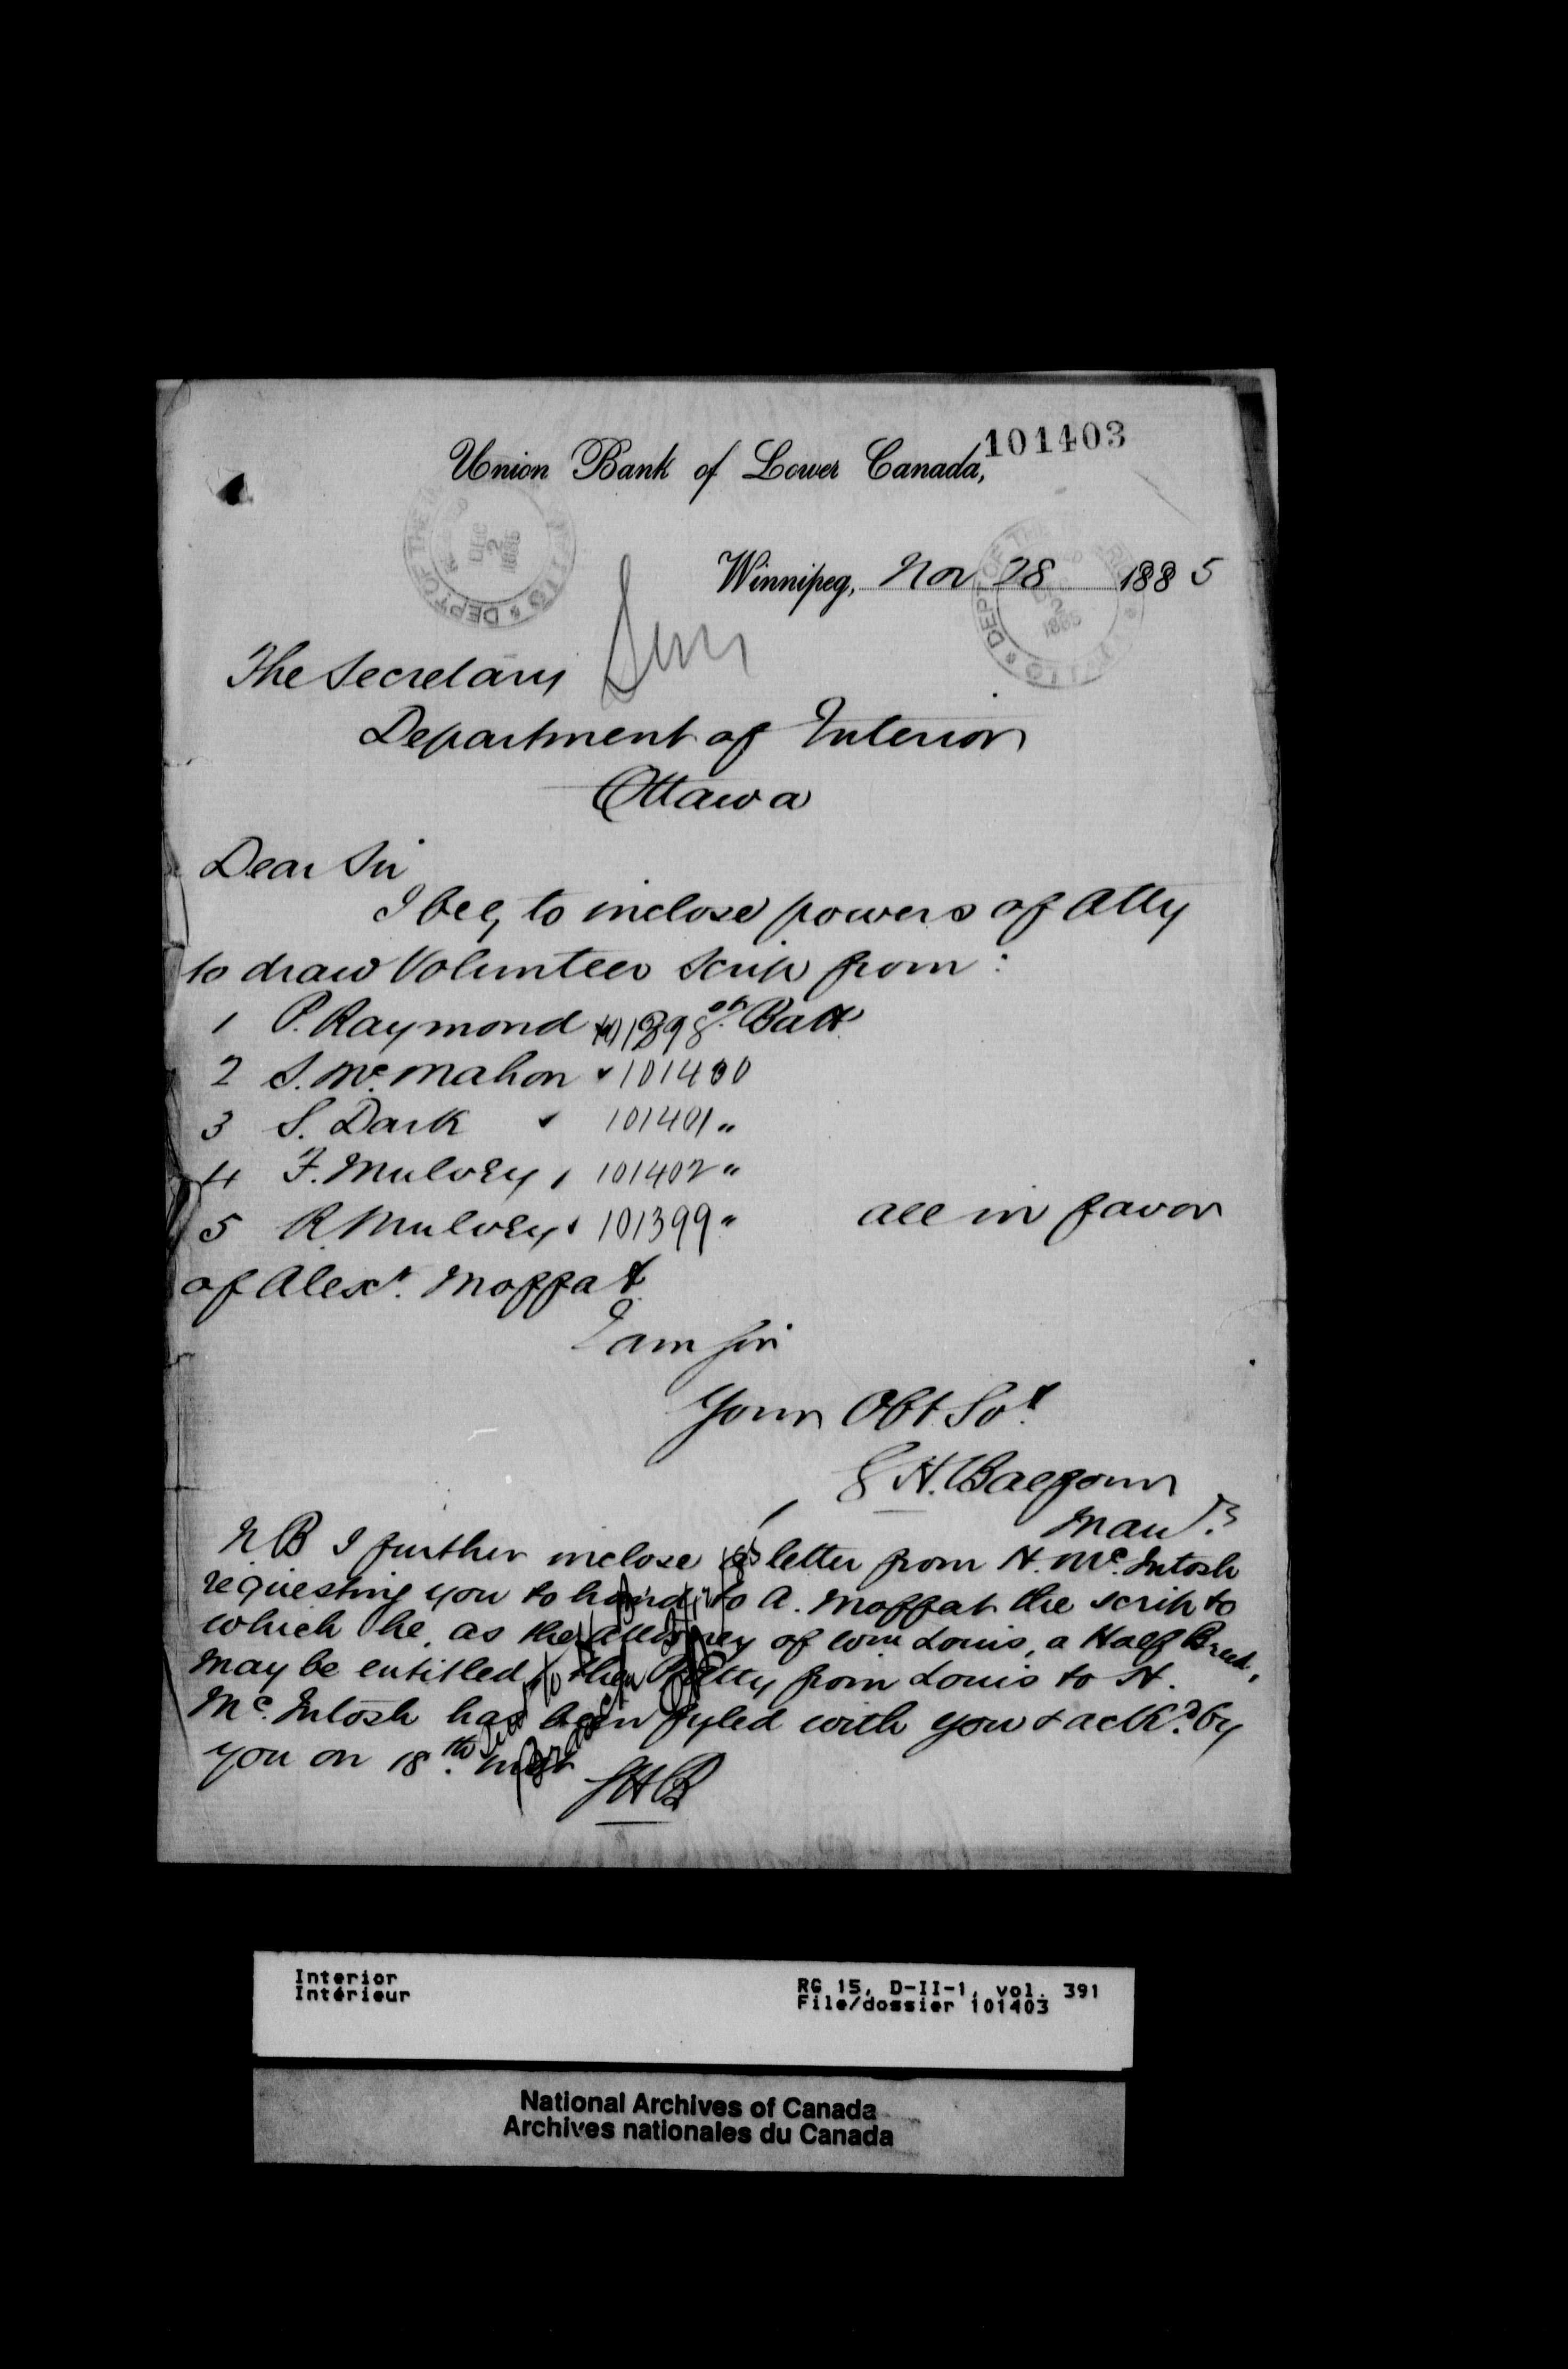 101403
Union Bank of Lower Canada,
Winnipeg, Nov 28 1885
DEPT OF THE
DEC
2
1885
DEPT OF THE
2
1885
The Secretary
Department of Interior
Ottawa
Dear Sir
I beg to inclose powers of Atty
to draw Volunteer Scrip from:
1 P. Raymond 101398 Batt
2 S. Mc.Mahon 101400
3 S. Dark 101401 "
4 F. Mulvey 101402 "
5 R. Mulvey 101399 " all in favor
of Alexr. Moffat
I am Sir
Your Obt Svt
Manr.
N.B I further inclose a letter from H. Mc.Intosh
requesting you to hand to A. Moffat the scrip to
which he, as the attorney of Wm Louis, a Half Breed,
may be entitled, the P Atty from Louis to H.
Mc.Intosh has been fyled with you & ackd. by
you on 18th. inst
Interior
Intérieur
RG 15, D-II-1, vol. 391
File/dossier 101403
National Archives of Canada
Archives nationales du Canada